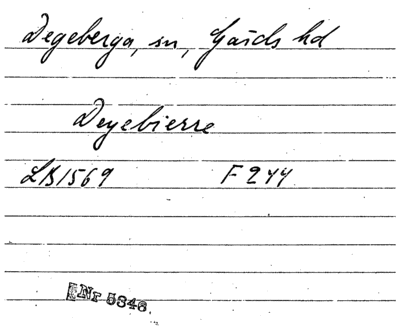 Degeberga, sn, Gärds hd
Degebierre
LB1569 F 244
Nr 5846.